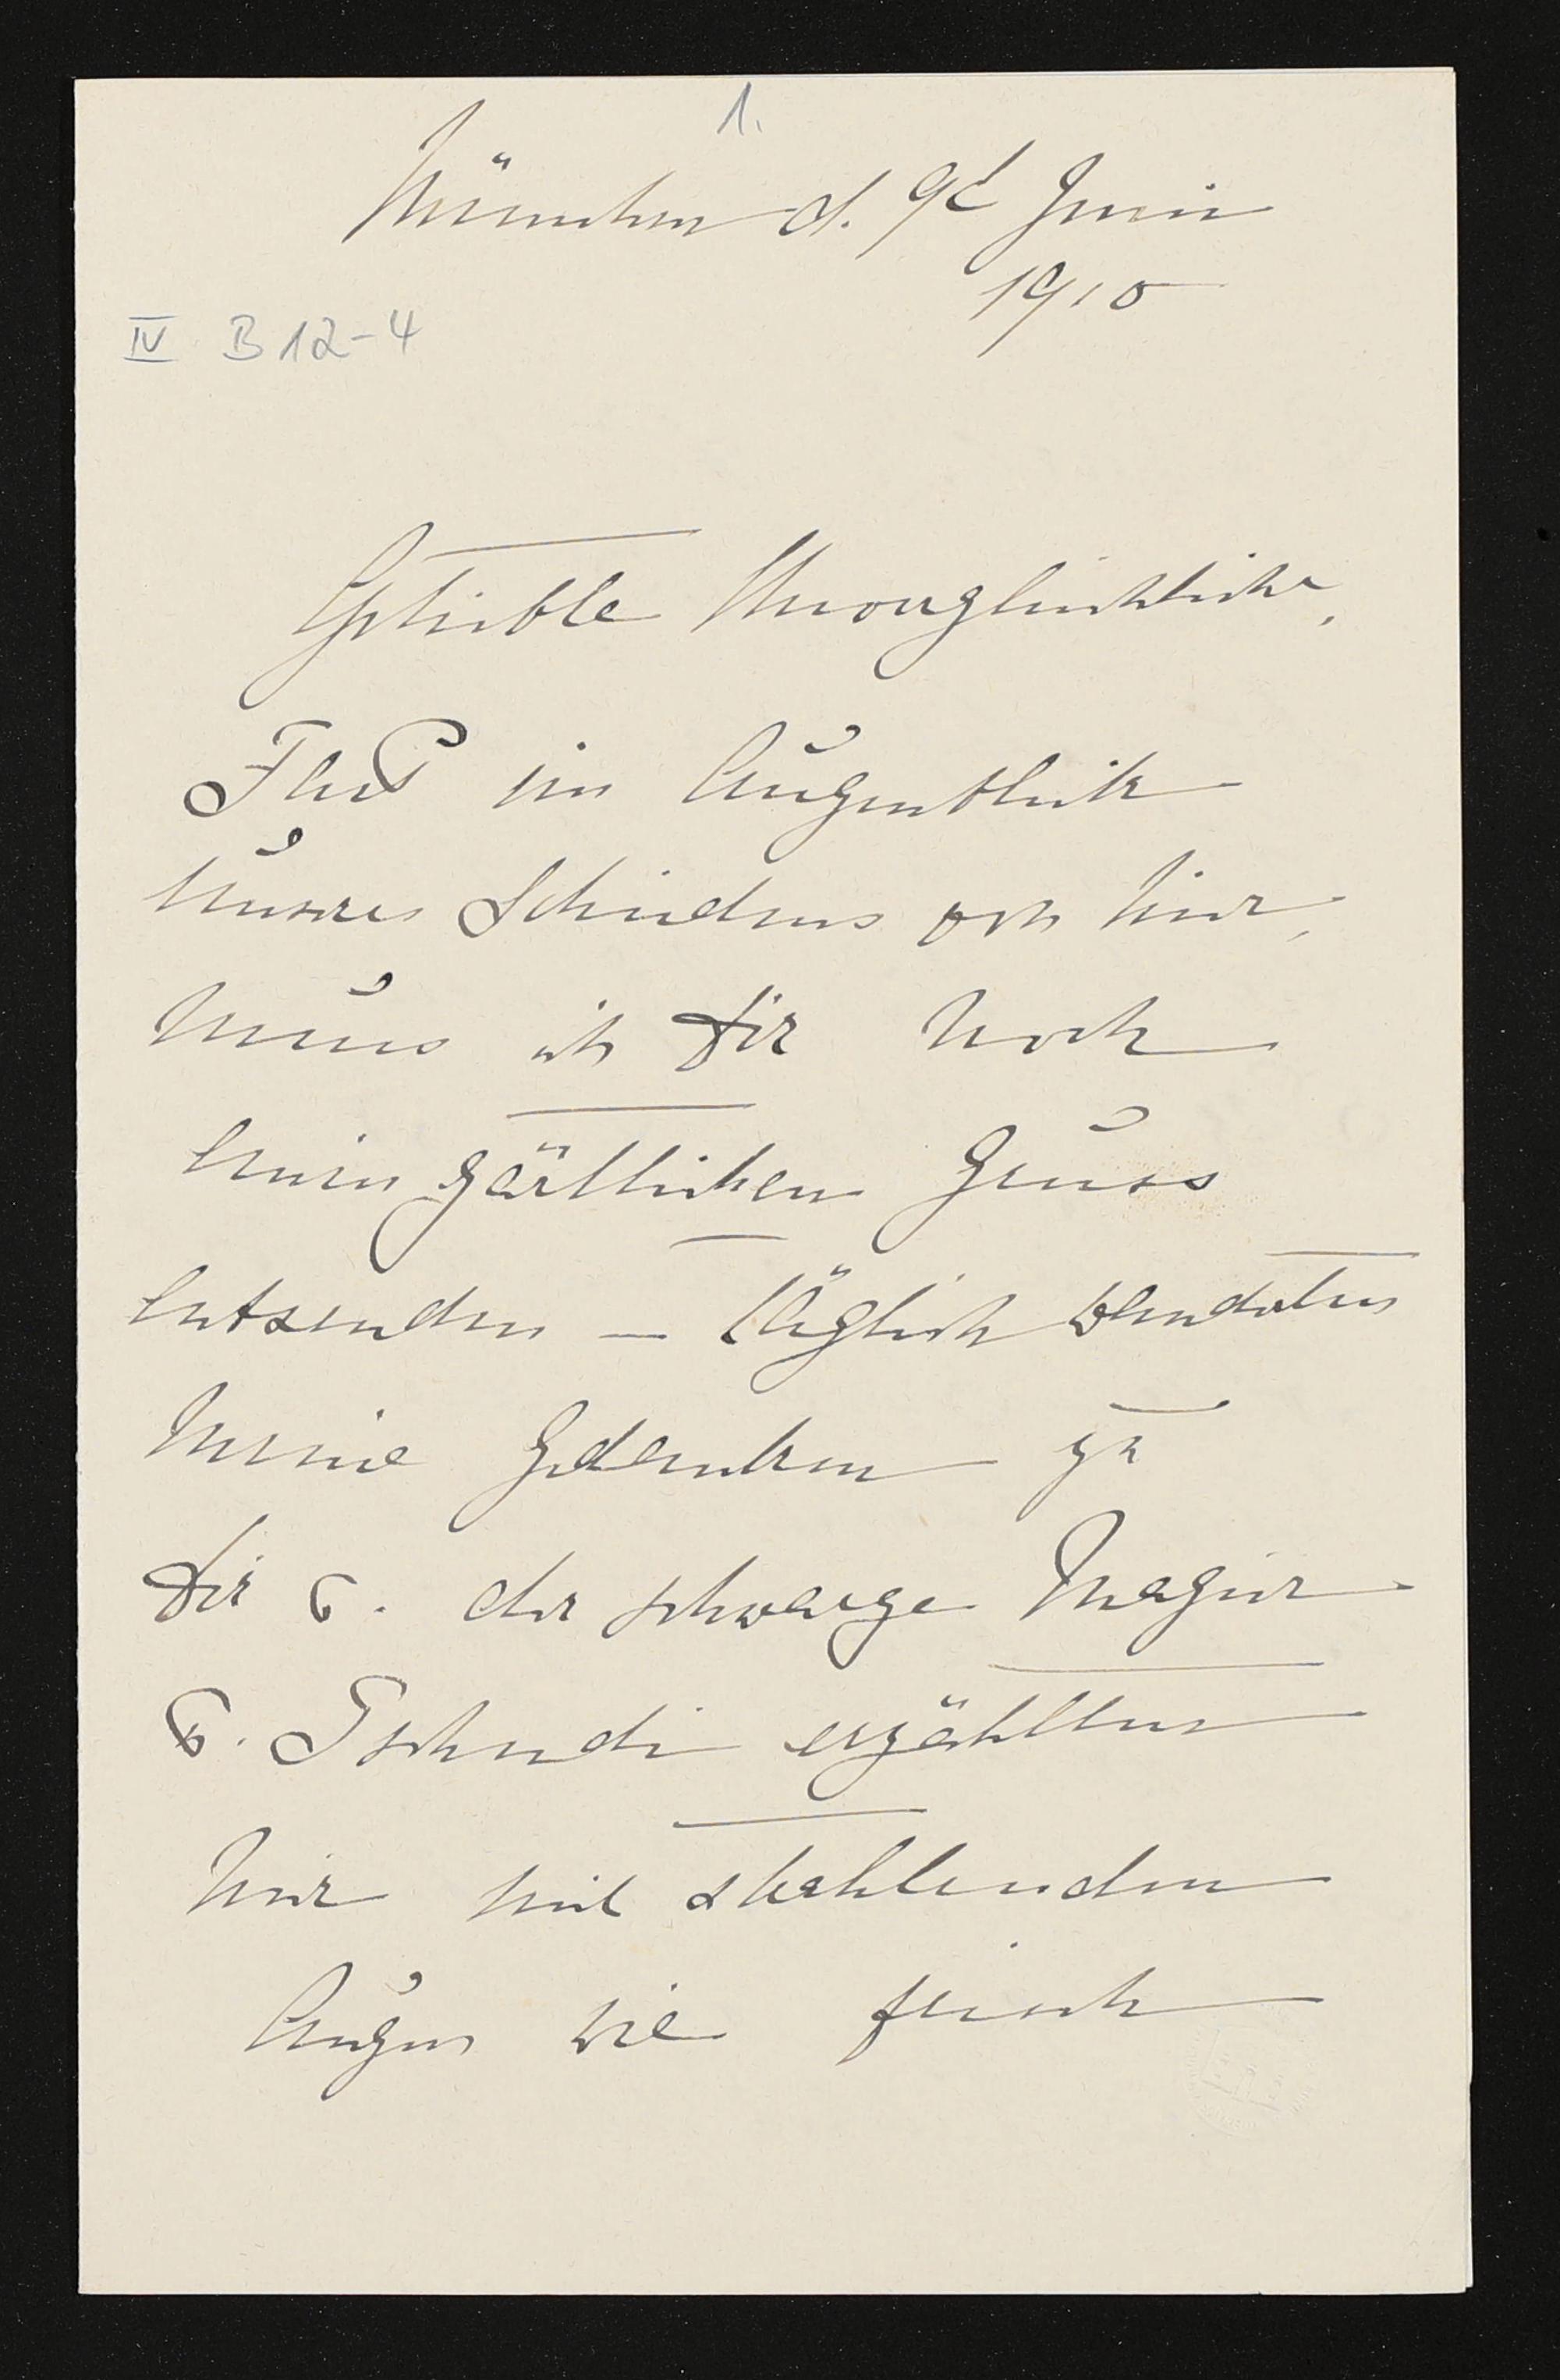 1.
München d. 9t Juni
1910
IV B 12-4
Geliebte Unvergleichliche,
Fast im Augenblick
unseres Scheidens von hier,
muss ich Dir noch
einen zärtlichen Gruss
entsenden — täglich wandelten
meine Gedanken zu
Dir u. der schwarze Magier
v. Tschudi erzählten
mir mit strahlenden
Augen wie frisch